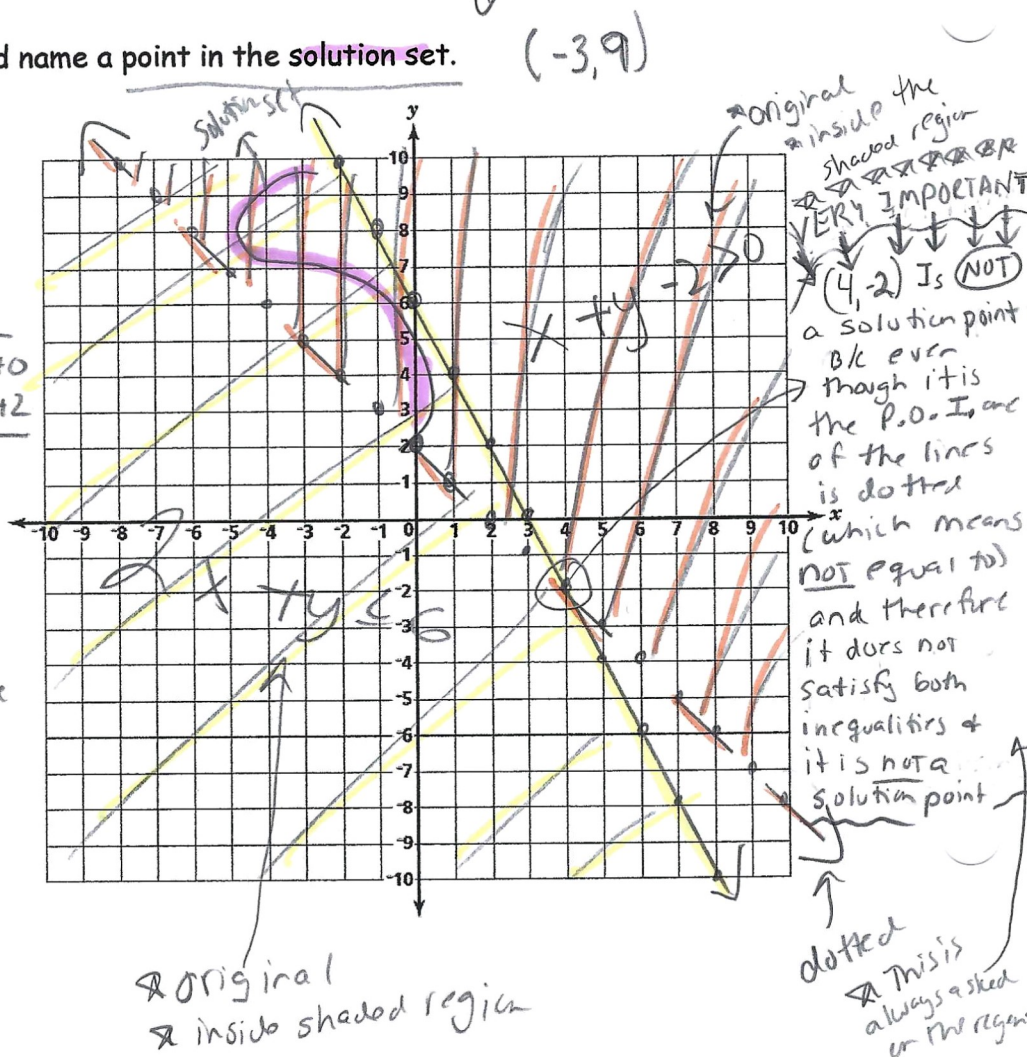 d name a point in the solution set.
(-3,9)
Solution set
y
x
10
9
8
7
6
5
4
3
2
1
-10 -9 -8 -7 -6 -5 -4 -3 -2 -1 0 1 2 3 4 5 6 7 8 9 10
-1
-2
-3
-4
-5
-6
-7
-8
-9
-10
x + y - 2 > 0
2x + y ≤ 6
+2
original
inside the
shaded region
VERY IMPORTANT
(4,-2) Is NOT
a solution point
B/c even
though it is
the P.O.I, one
of the lines
is dotted
(which means
NOT equal to)
and therefore
it does not
satisfy both
inequalities &
it is not a
solution point
dotted
This is
always asked
on the regen
original
inside shaded region